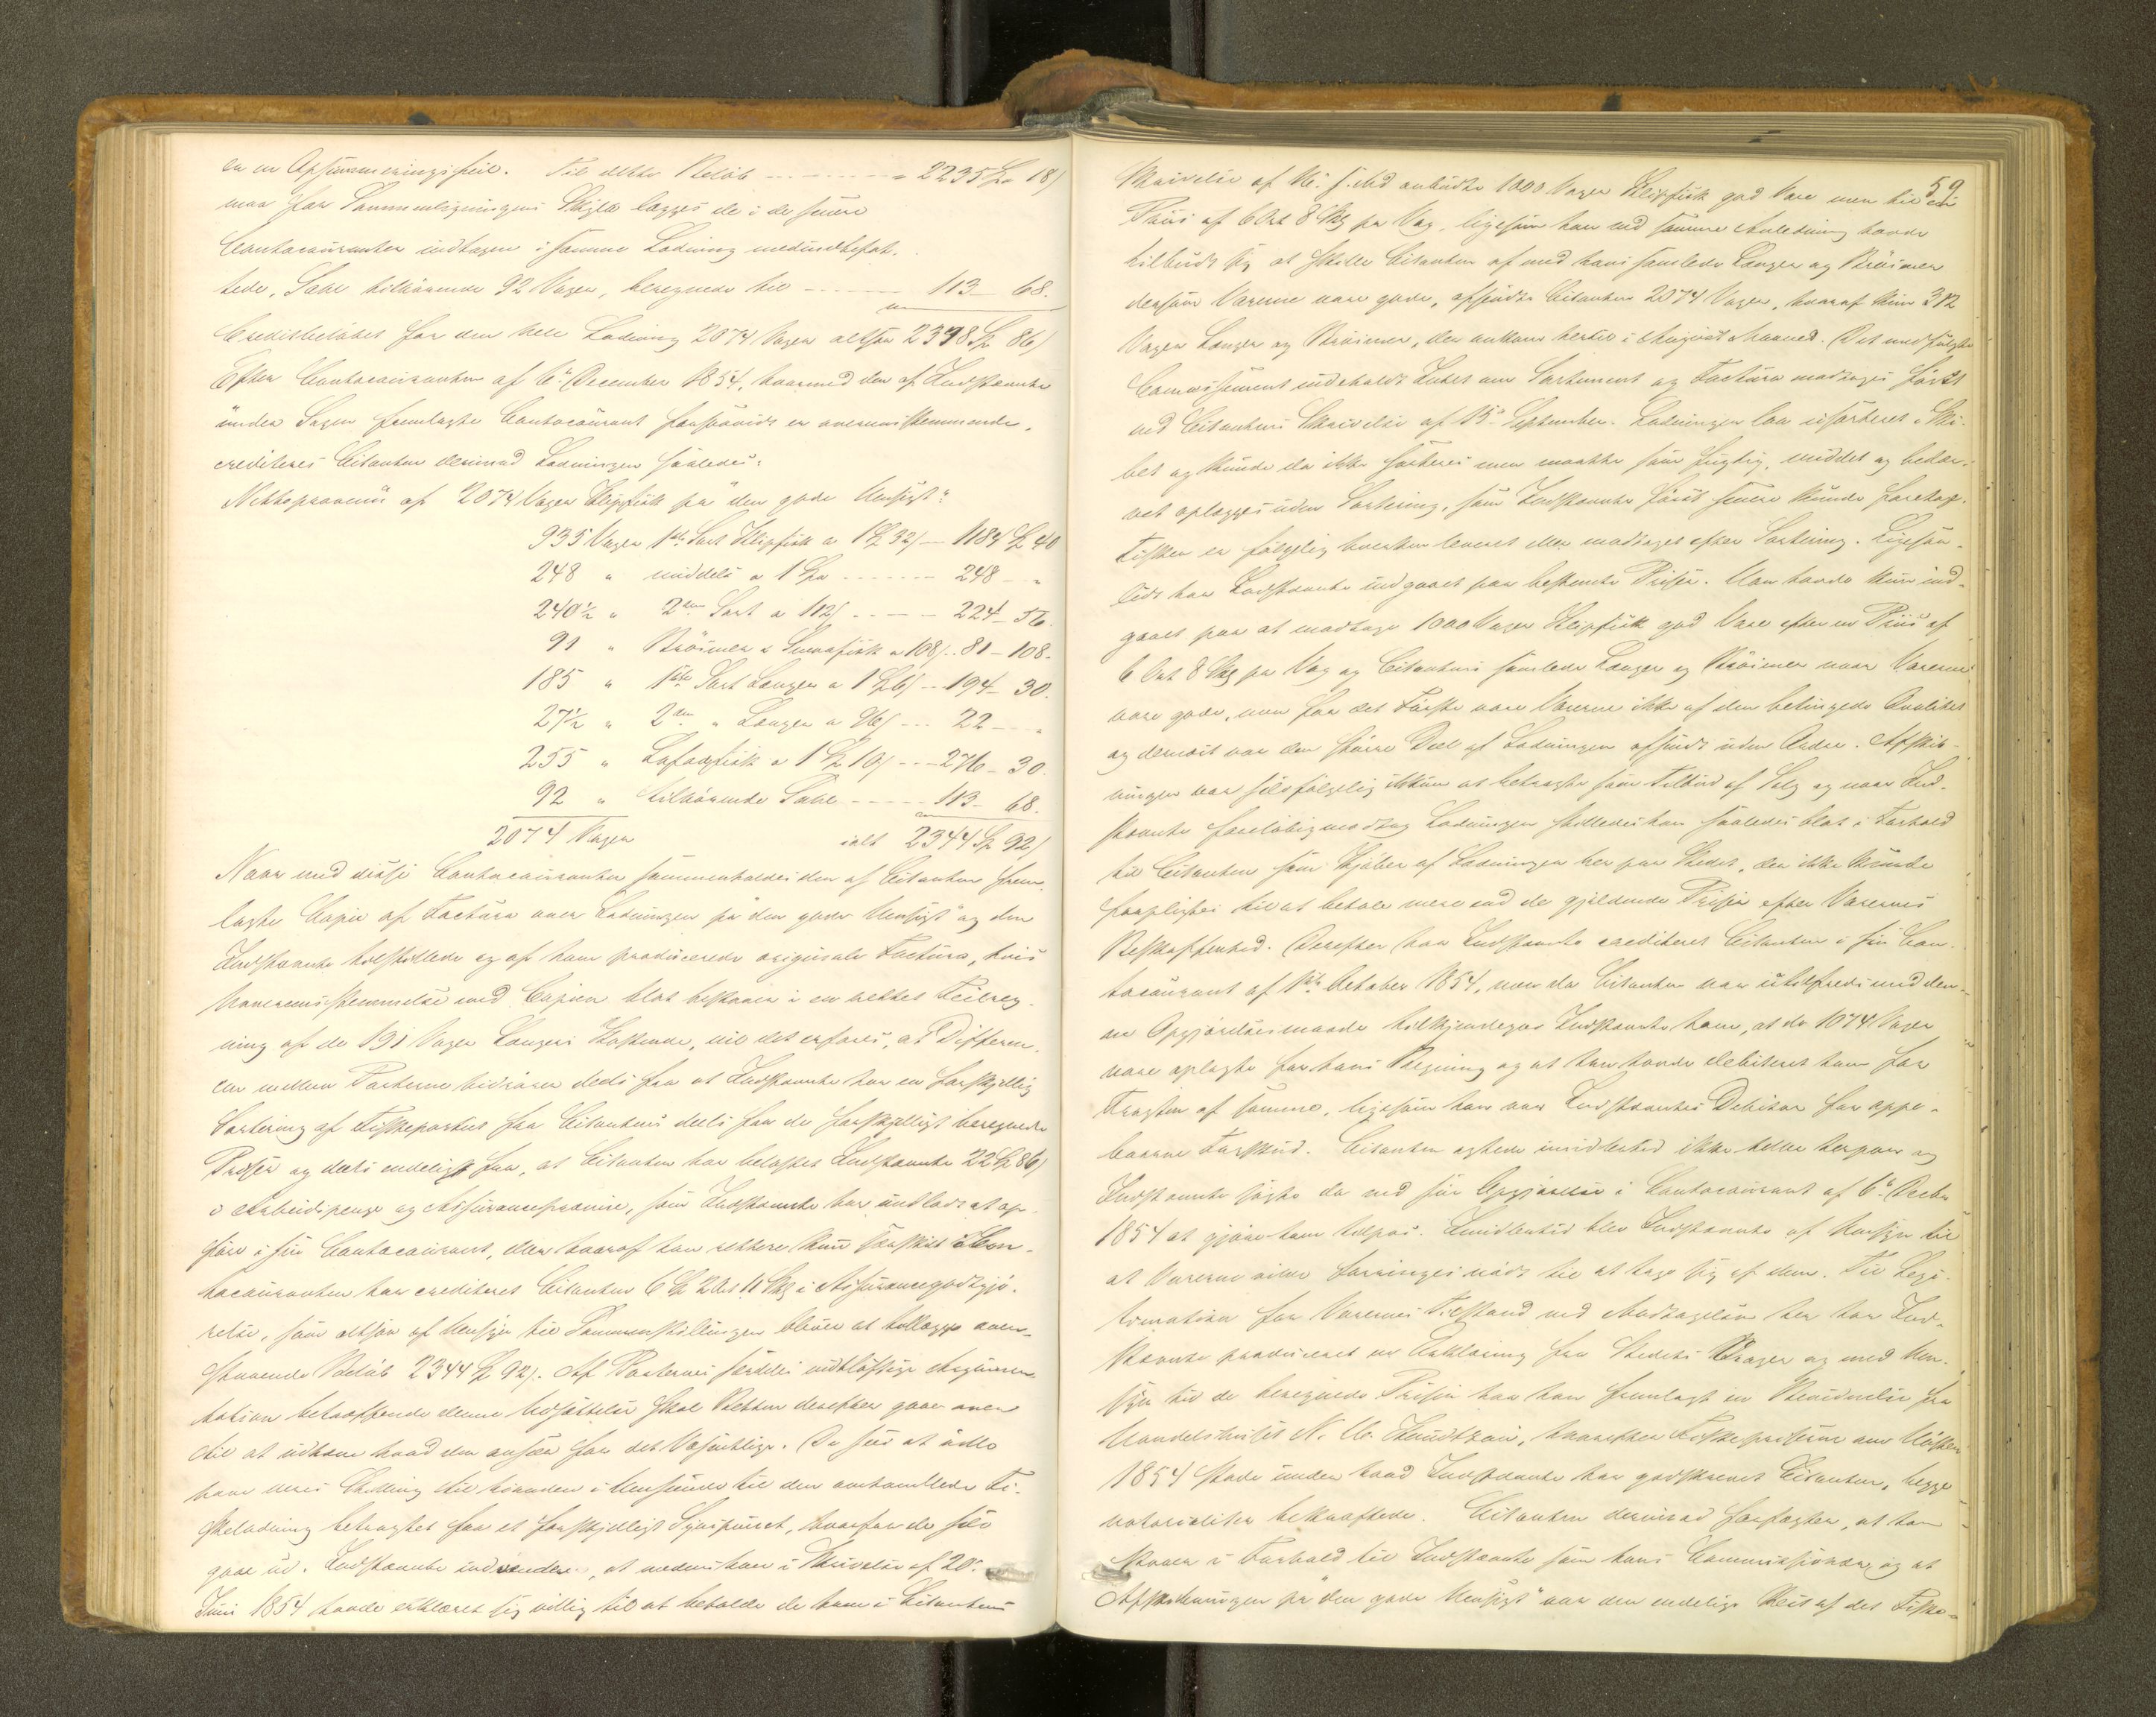 en en Opsummeringsfeil. Til dette Beløb - - - - - - - - = 2235 Spd 18/
maa for Sammenligningens Skyld lægges de i de senere
Contocouranter indtagen i samme Ladning medindbefat-
tede, Sahl tilhørende 92 Vager, beregnede til - - - - - 113 - 68.
Creditbeløbet for den hele Ladning 2074 Vager altsaa 2348 Sp 86/
Efter Contocouranten af 6te December 1854, hvormed den af Indstevnte
under Sagen fremlagte Contocourant forsaavidt er overensstemmende,
crediteres Citanten derimod Ladningen saaledes:
Nettoprovenu af 2074 Vager Klipfisk pr "den gode Hensigt":
935 Vager 1ste Sort Klipfisk a 1 Sp 32/ - 1184 Sp 40
248 " middels a 1 Spd - - - - - 248 - "
240½ " 2den Sort a 112/ - - - - 224 - 56.
91 " Brosmer & Smaafisk a 108/ - - 81 - 108.
185 " 1ste Sort Langer a 1 Sp 6/ - - 194 - 30.
27½ " 2den " Langer a 96/ - - - 22 - "
255 " Lofotfisk a 1 Sp 10/ - - - 276 - 30.
92 " tilhørende Sahl - - - - - 113 - 68.
2074 Vager ialt 2344 Sp 92/
Naar med disse Contocouranter sammenholdes den af Citanten frem-
lagte Copie af Factura over Ladningen pr "den gode Hensigt" og den
Indstevnte tilstillede og af ham producerede originale Factura, hvis
Uoverensstemmelse med Copien blot bestaaer i en rettet Feilreg-
ning af de 191 Vager Langers Kostende, vil det erfares, at Differen-
cen mellem Parterne hidrører deels fra at Indstevnte har en forskjellig
Sortering af Fiskepartiet fra Citantens deels fra de forskjelligt beregnede
Priser og deels endeligt fra, at Citanten har belastet Indstevnte 22 Sp 86/
i Arbeidspenge og Assurancepræmie, som Indstevnte har undladt at op-
føre i sin Contocourant, eller hvoraf han rettere kun særskilt i Con-
tocouranten har crediteret Citanten 6 Sp 2 Ort 11 Sk i Assurancegodtgjø-
relse, som altsaa af Hensyn til Sammenstillingen bliver at tillægge oven-
staaende Beløb 2344 Sp 92/. Af Parternes særdeles vidtløftige Argumen-
tation betræffende denne Udsættelse skal Retten derefter gaae over
til at udhæve hvad den anseer for det Væsentlige. De sees at udlede
hver deres Stilling til hinanden i Henseende til den omhandlede Fi-
skeladning betragtet fra et forskjelligt Synspunct, hvorfra de selv
gaae ud. Indstevnte indvender, at medens han i Skrivelse af 20de
Juni 1854 havde erklæret sig villig til at beholde de ham i Citantens
59
Skrivelse af 16de s. Md anbudte 1000 Vager Klipfisk god Vare men til en
Priis af 6 Ort 8 Sk pr Vog, ligesom han ved samme Anledning havde
tilbudt sig at skille Citanten af med hans samlede Langer og Brosmer
dersom Varerne vare gode, afsendte Citanten 2074 Vager, hvoraf kun 312
Vager Langer og Brosmer, der ankom hertil i August Maaned. Det medfulgte
Connossement indeholdt Intet om Sortement og Factura modtoges først
ved Citantens Skrivelse af 15de September. Ladningen laa usorteret i Ski-
bet og kunde da ikke sorteres men maatte som fugtig, middet og bedær-
vet oplægges uden Sortering, som Indstevnte først senere kunde foretage.
Fisken er følgelig hverken leveret eller modtaget efter Sortering. Ligesaa-
lidt har Indstevnte indgaaet paa bestemte Priser. Han havde kun ind-
gaaet paa at modtage 1000 Vager Klipfisk god Vare efter en Priis af
6 Ort 8 Sk pr Vog og Citantens samlede Langer og Brosmer naar Varerne
vare gode, men for det Første vare Varerne ikke af den betingede Qualitet
og dernæst var den større Deel af Ladningen afsendt uden Ordre. Afskib-
ningen var selvfølgelig at betragte som Tilbud af Salg og naar Ind-
stevnte foreløbig modtog Ladningen stilledes han saaledes blot i Forhold
til Citanten som Kjøber af Ladningen her paa Stedet, der ikke kunde
forpligtes til at betale mere end de gjældende Priser efter Varernes
Beskaffenhed. Derefter har Indstevnte crediteret Citanten i sin Con-
tocourant af 1ste October 1854, men da Citanten var utilfreds med den-
ne Opgjørelsesmaade tilkjendegav Indstevnte ham, at de 1074 Vager
vare oplagte for hans Regning og at han havde debiteret ham for
Fragten af samme, ligesom han var Indstevntes Debitor for oppe-
baarne Forskud. Citanten agtede imidlertid ikke heller herpaa og
Indstevnte søgte da ved sin Opgjørelse i Contocourant af 6te Decbr
1854 at gjøre ham tilpas. Imidlertid blev Indstevnte af Hensyn til
at Varerne vilde forringes nødt til at tage sig af dem. Til Legi-
timation for Varernes Tilstand ved Modtagelsen her har Ind-
stevnte produceret en Erklæring fra Stedets Vrager og med Hen-
syn til de beregnede Priser har han fremlagt en Bevidnelse fra
Handelshuset N. H. Knudtzon, hvorefter Fiskepriserne om Høsten
1854 stode under hvad Indstevnte har godtskrevet Citanten, begge
notarialiter bekræftede. Citanten derimod forfægter, at han
staaer i Forhold til Indstevnte som hans Commissionær og at
Afskibningen pr "den gode Hensigt" var den endelige Rest af det Fiske-